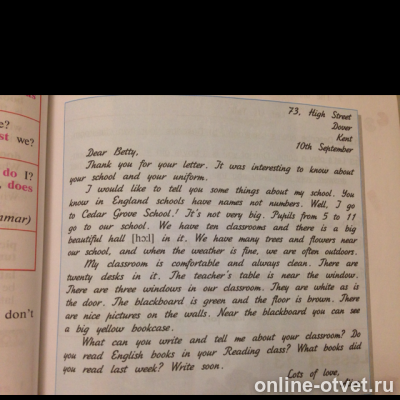 73, High Street
Dover
Kent
10th September
Dear Betty,
Thank you for your letter. It was interesting to know about
your school and your uniform.
I would like to tell you some things about my school. You
know in England schools have names not numbers. Well, I go
to Cedar Grove School! It's not very big. Pupils from 5 to 11
go to our school. We have ten classrooms and there is a big
beautiful hall [hɔːl] in it. We have many trees and flowers near
our school, and when the weather is fine, we are often outdoors.
My classroom is comfortable and always clean. There are
twenty desks in it. The teacher's table is near the window.
There are three windows in our classroom. They are white as is
the door. The blackboard is green and the floor is brown. There
are nice pictures on the walls. Near the blackboard you can see
a big yellow bookcase.
What can you write and tell me about your classroom? Do
you read English books in your Reading class? What books did
you read last week? Write soon.
Lots of love,
e?
st we?
do I?
does
mar)
don't
online-otvet.ru